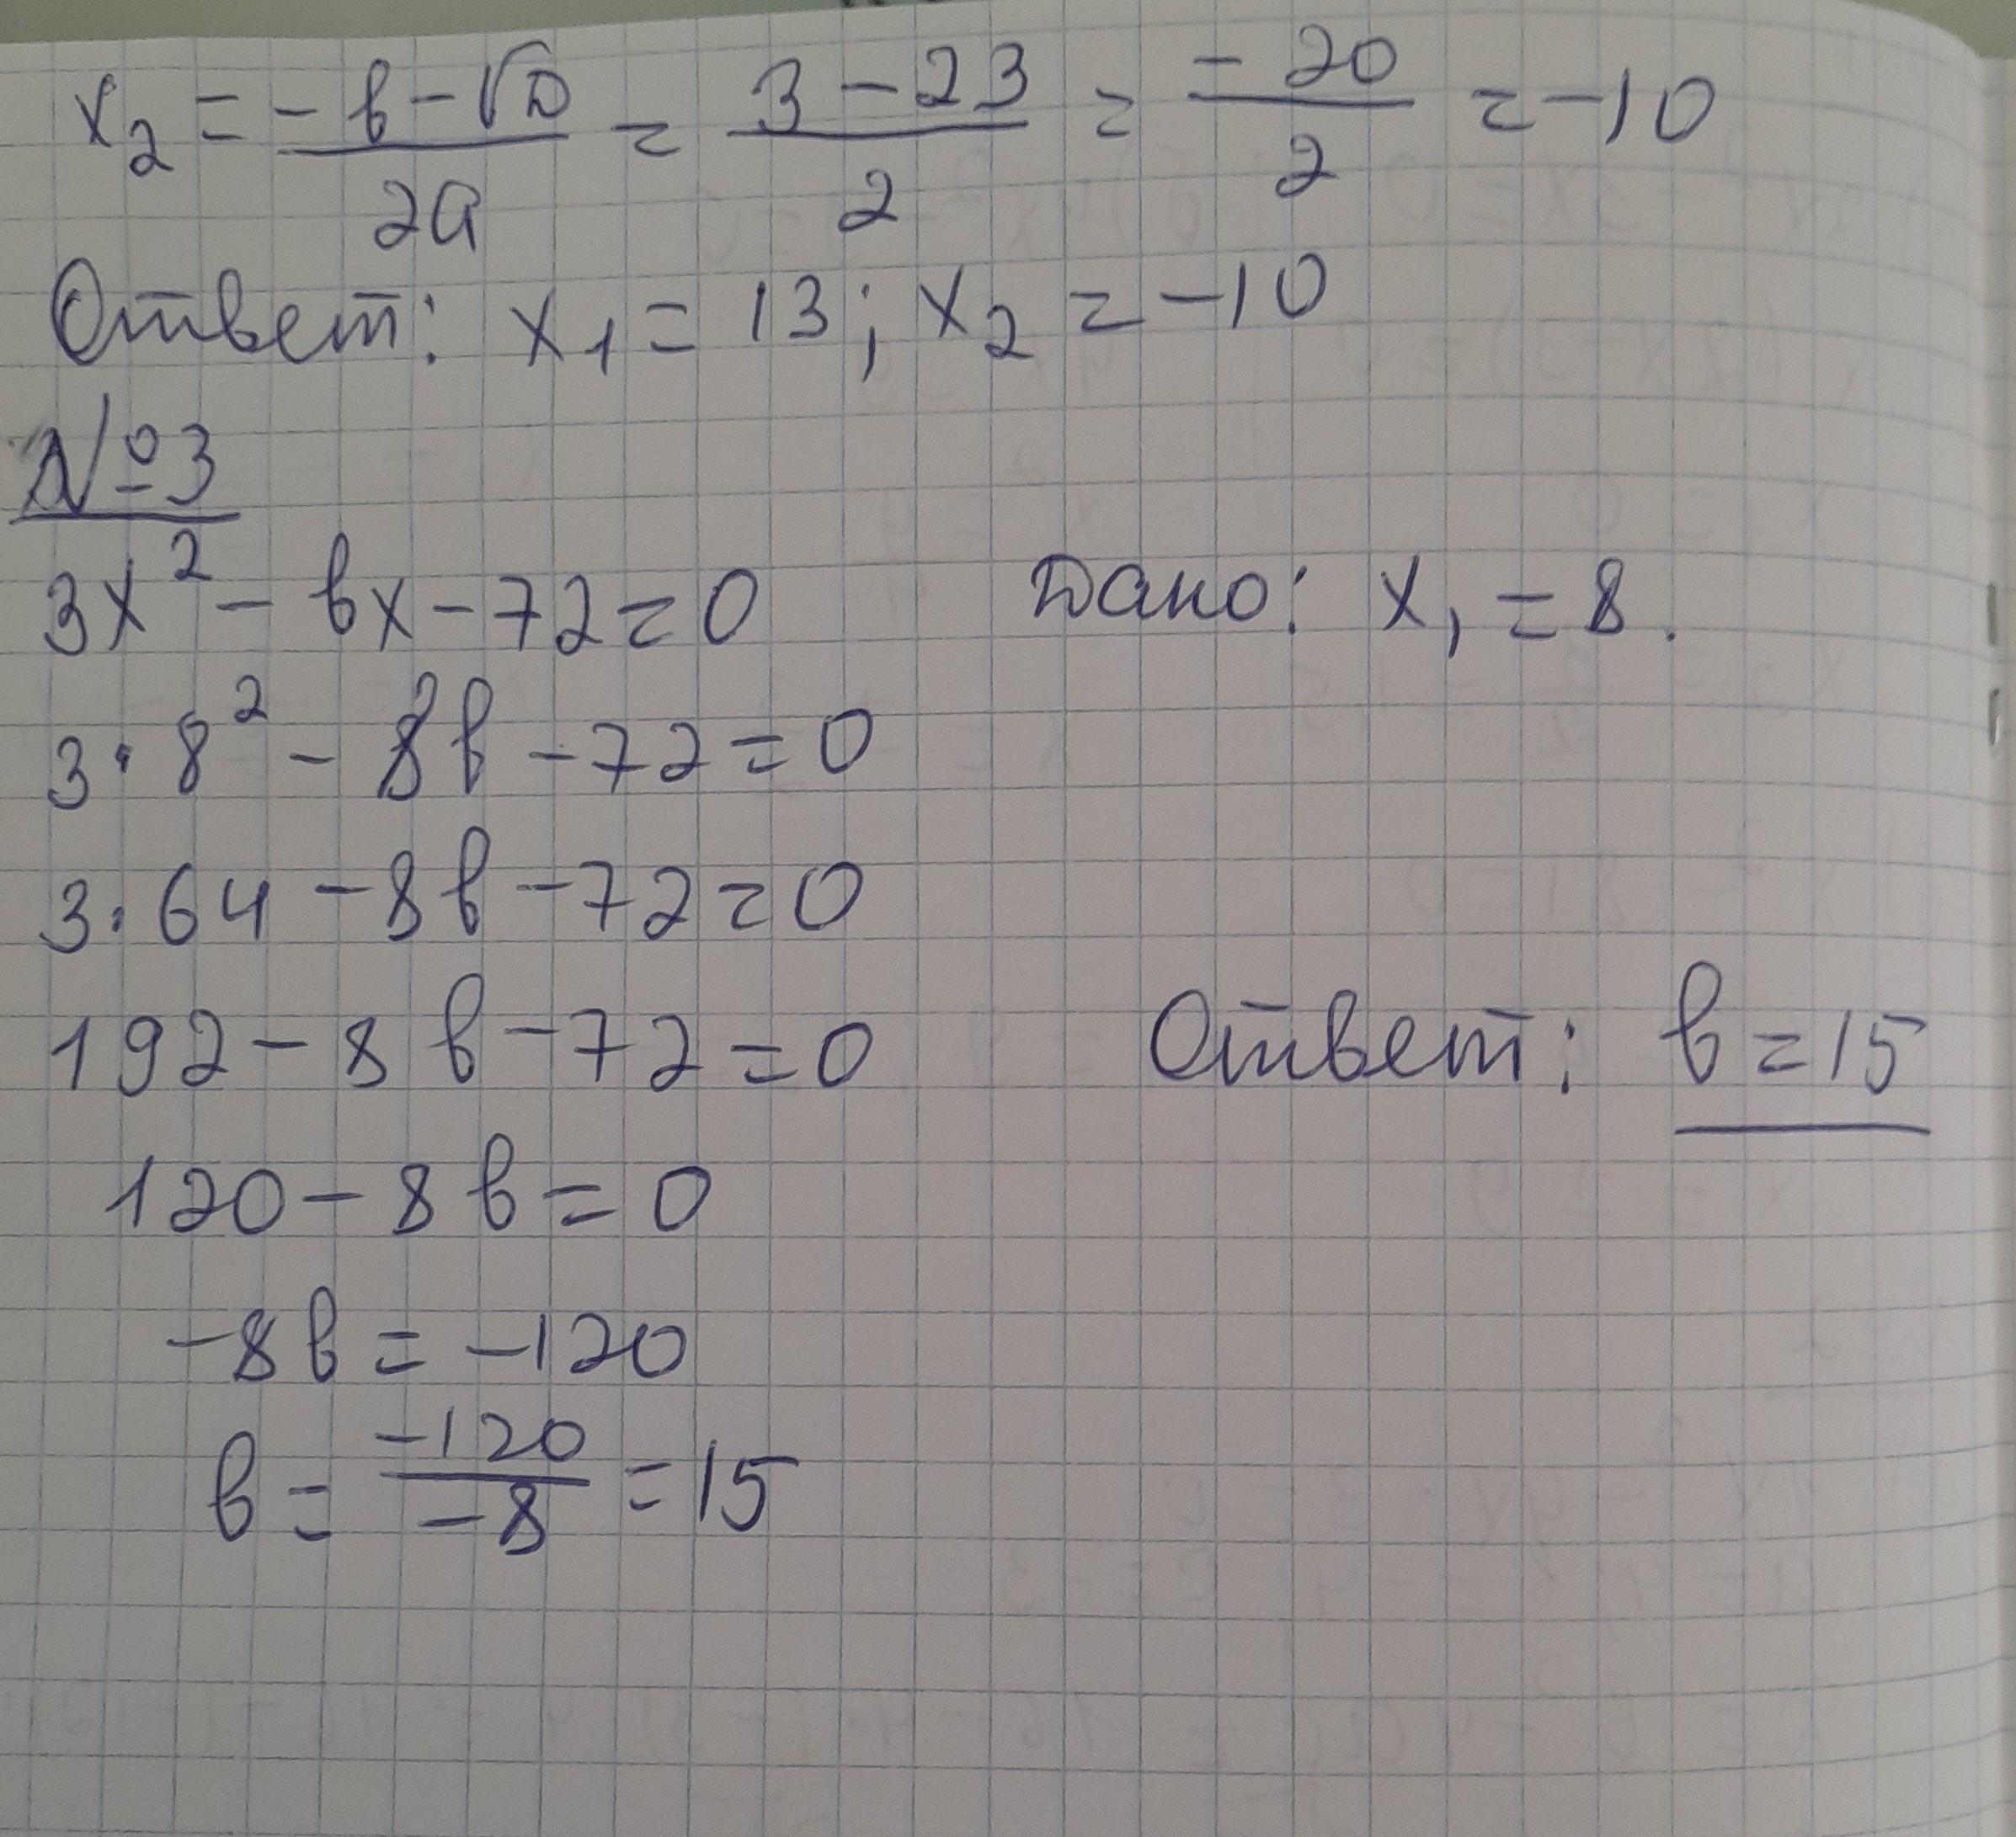 x₂ = (-b-√D)/(2a) = (3-23)/2 = (-20)/2 = -10
Ответ: x₁ = 13; x₂ = -10
№3
3x² - bx - 72 = 0 Дано: x₁ = 8.
3·8² - 8b - 72 = 0
3·64 - 8b - 72 = 0
192 - 8b - 72 = 0 Ответ: b = 15
120 - 8b = 0
-8b = -120
b = (-120)/(-8) = 15